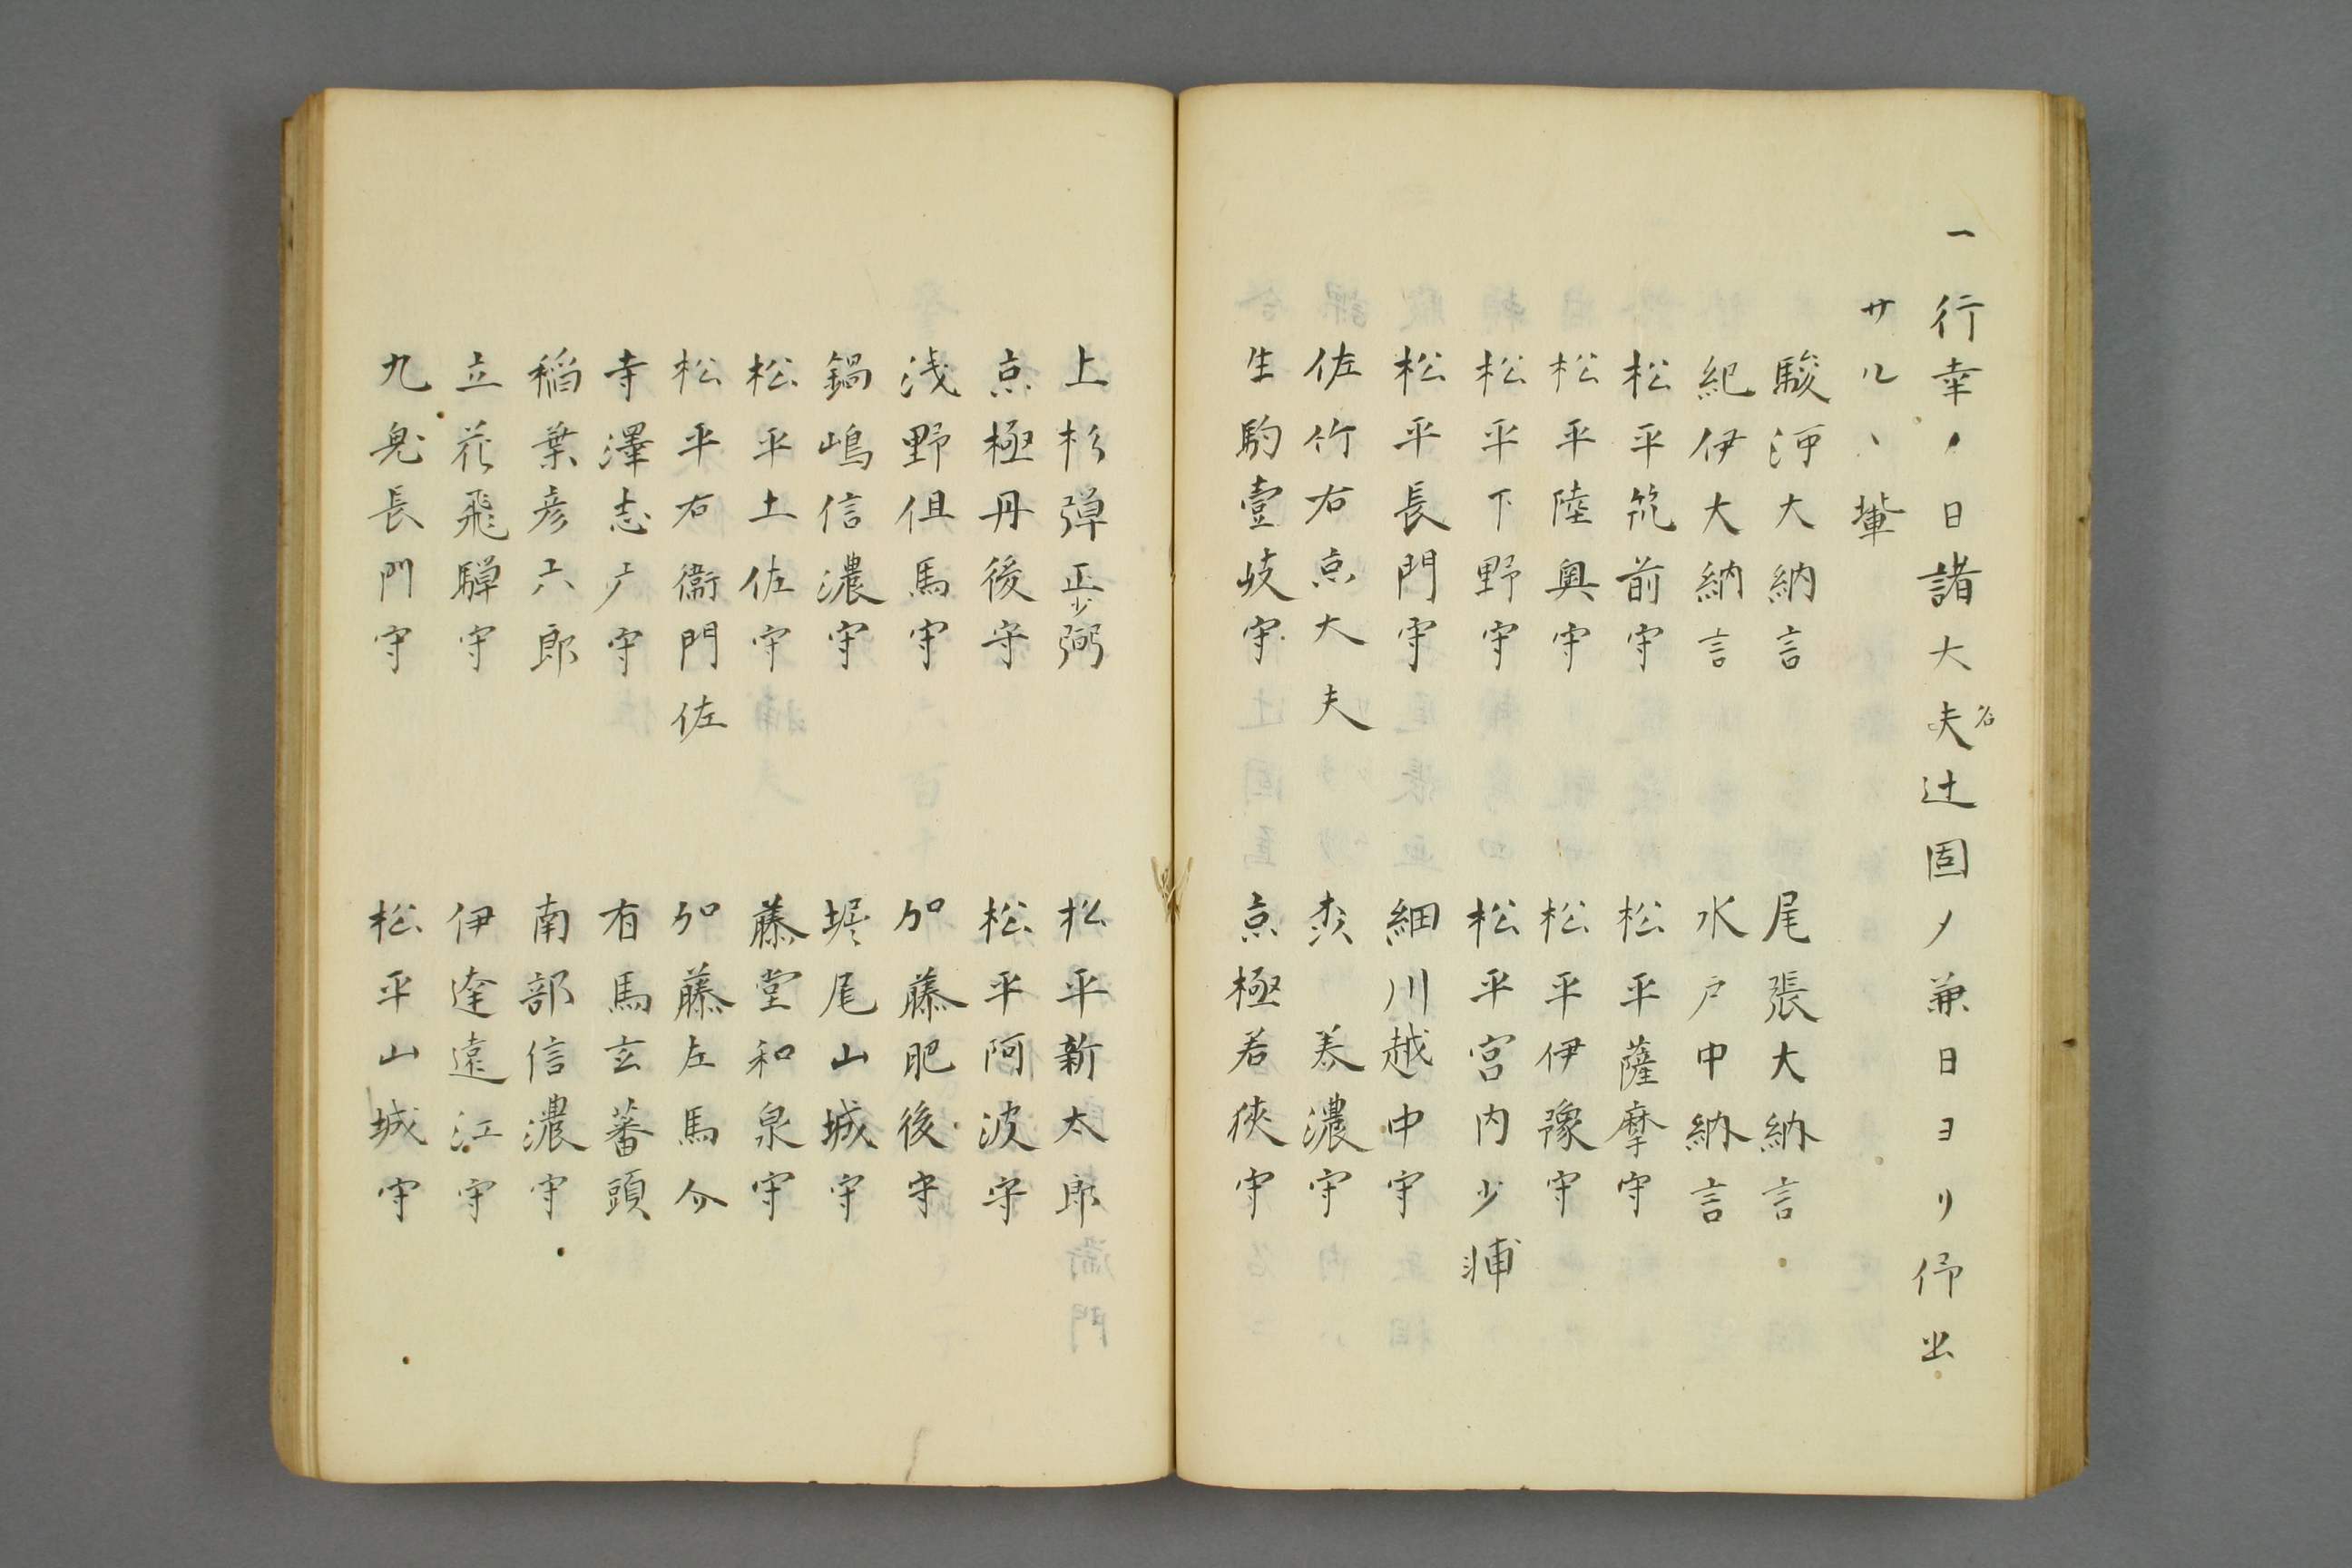 一行幸ノ日諸大夫名辻固ノ兼日ヨリ仰出
サルヽ輩
駿河大納言　尾張大納言
紀伊大納言　水戸中納言
松平筑前守　松平薩摩守
松平陸奥守　松平伊豫守
松平下野守　松平宮内少輔
松平長門守　細川越中守
佐竹右京大夫　森　美濃守
生駒壹岐守　京極若狹守
上杉弾正少弼　松平新太郎
京極丹後守　松平阿波守
浅野但馬守　加藤肥後守
鍋嶋信濃守　堀尾山城守
松平土佐守　藤堂和泉守
松平右衞門佐　加藤左馬介
寺澤志广守　有馬玄蕃頭
稲葉彦六郎　南部信濃守
立花飛騨守　伊達遠江守
九鬼長門守　松平山城守